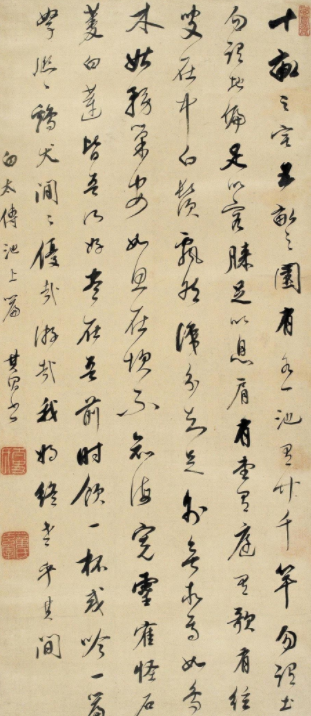 十畝之宅五畝之園有水一池有竹千竿勿謂土
勿謂地偏足以容膝足以息肩有堂有庭有歌有絃
叟在中白鬚飄然識分知足外無求焉如鳥
木姑務巢安如龜在坎不知海寬靈鶴怪石
菱白蓮皆吾所好盡在吾前時飲一杯或吟一篇
孥熙熙雞犬閒閒優哉游哉我將終老乎其間
白太傅池上篇 其昌書